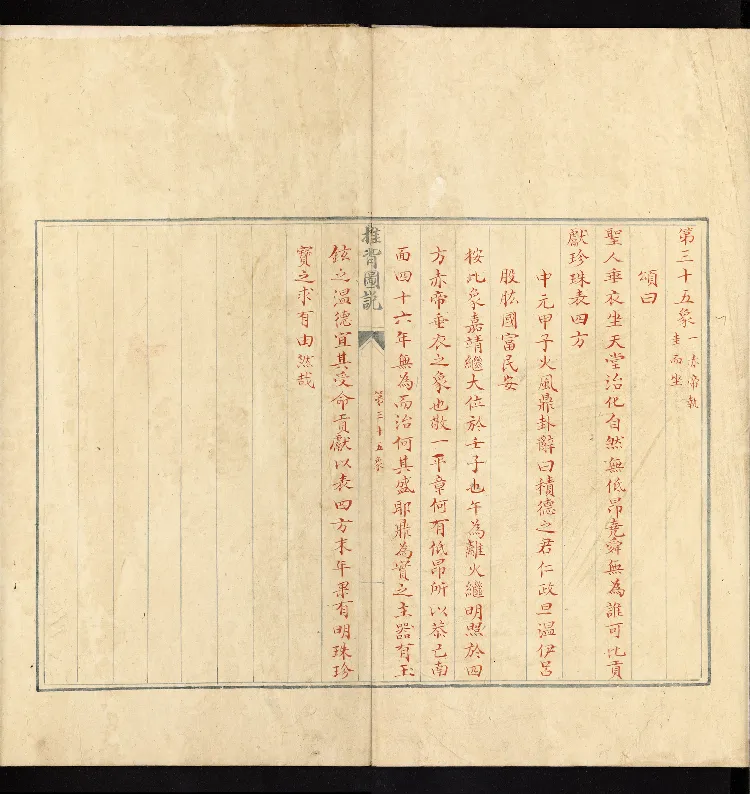 第三十五象
一赤帝執
圭而坐
頌曰
聖人垂衣坐天堂治化自然無低昂堯舜無為誰可比貢
獻珍珠表四方
中元甲子火風鼎卦辭曰積德之君仁政且溫伊呂
股肱國富民安
按此象嘉靖繼大位於壬子也午為離火繼明照於四
方赤帝垂衣之象也敬一平章何有低昂所以恭己南
面四十六年無為而治何其盛耶鼎為寶之主器有玉
推背圖說
第三十五象
鉉之溫德宜其受命貢獻以表四方末年果有明珠珍
寶之求有由然哉